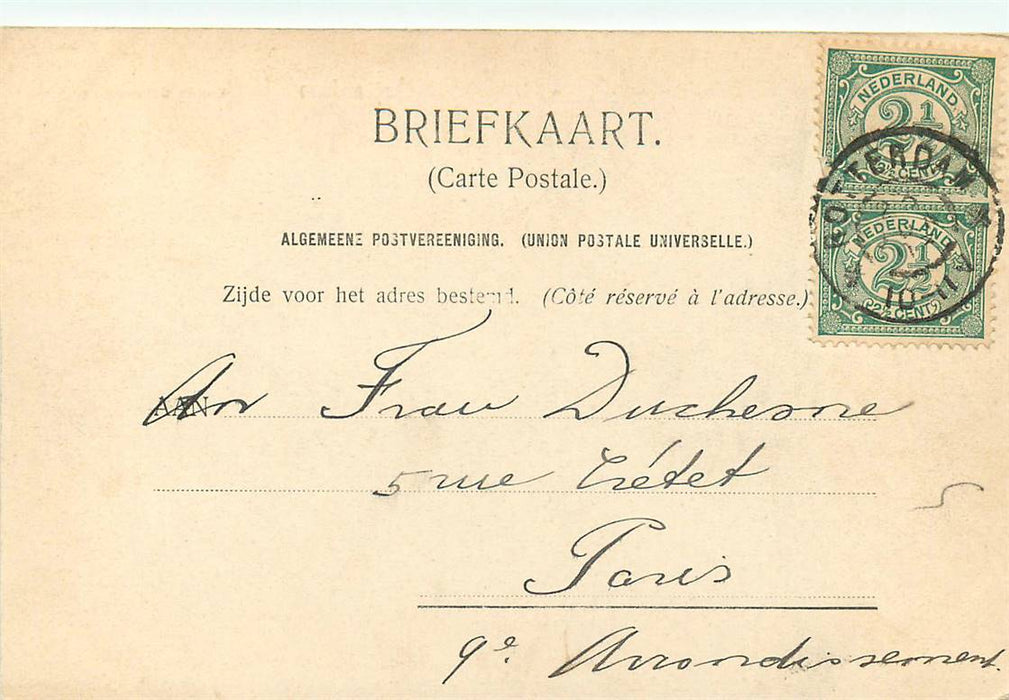 BRIEFKAART.
(Carte Postale.)
ALGEMEENE POSTVEREENIGING. (UNION POSTALE UNIVERSELLE.)
Zijde voor het adres bestemd. (Côté réservé à l'adresse.)
NEDERLAND
2½
2½ CENT
ROTTERDAM
NEDERLAND
2½
2½ CENT
10-11
AAN
An Frau Duchesne
5 rue Crétet
Paris
9e. Arrondissement.
5